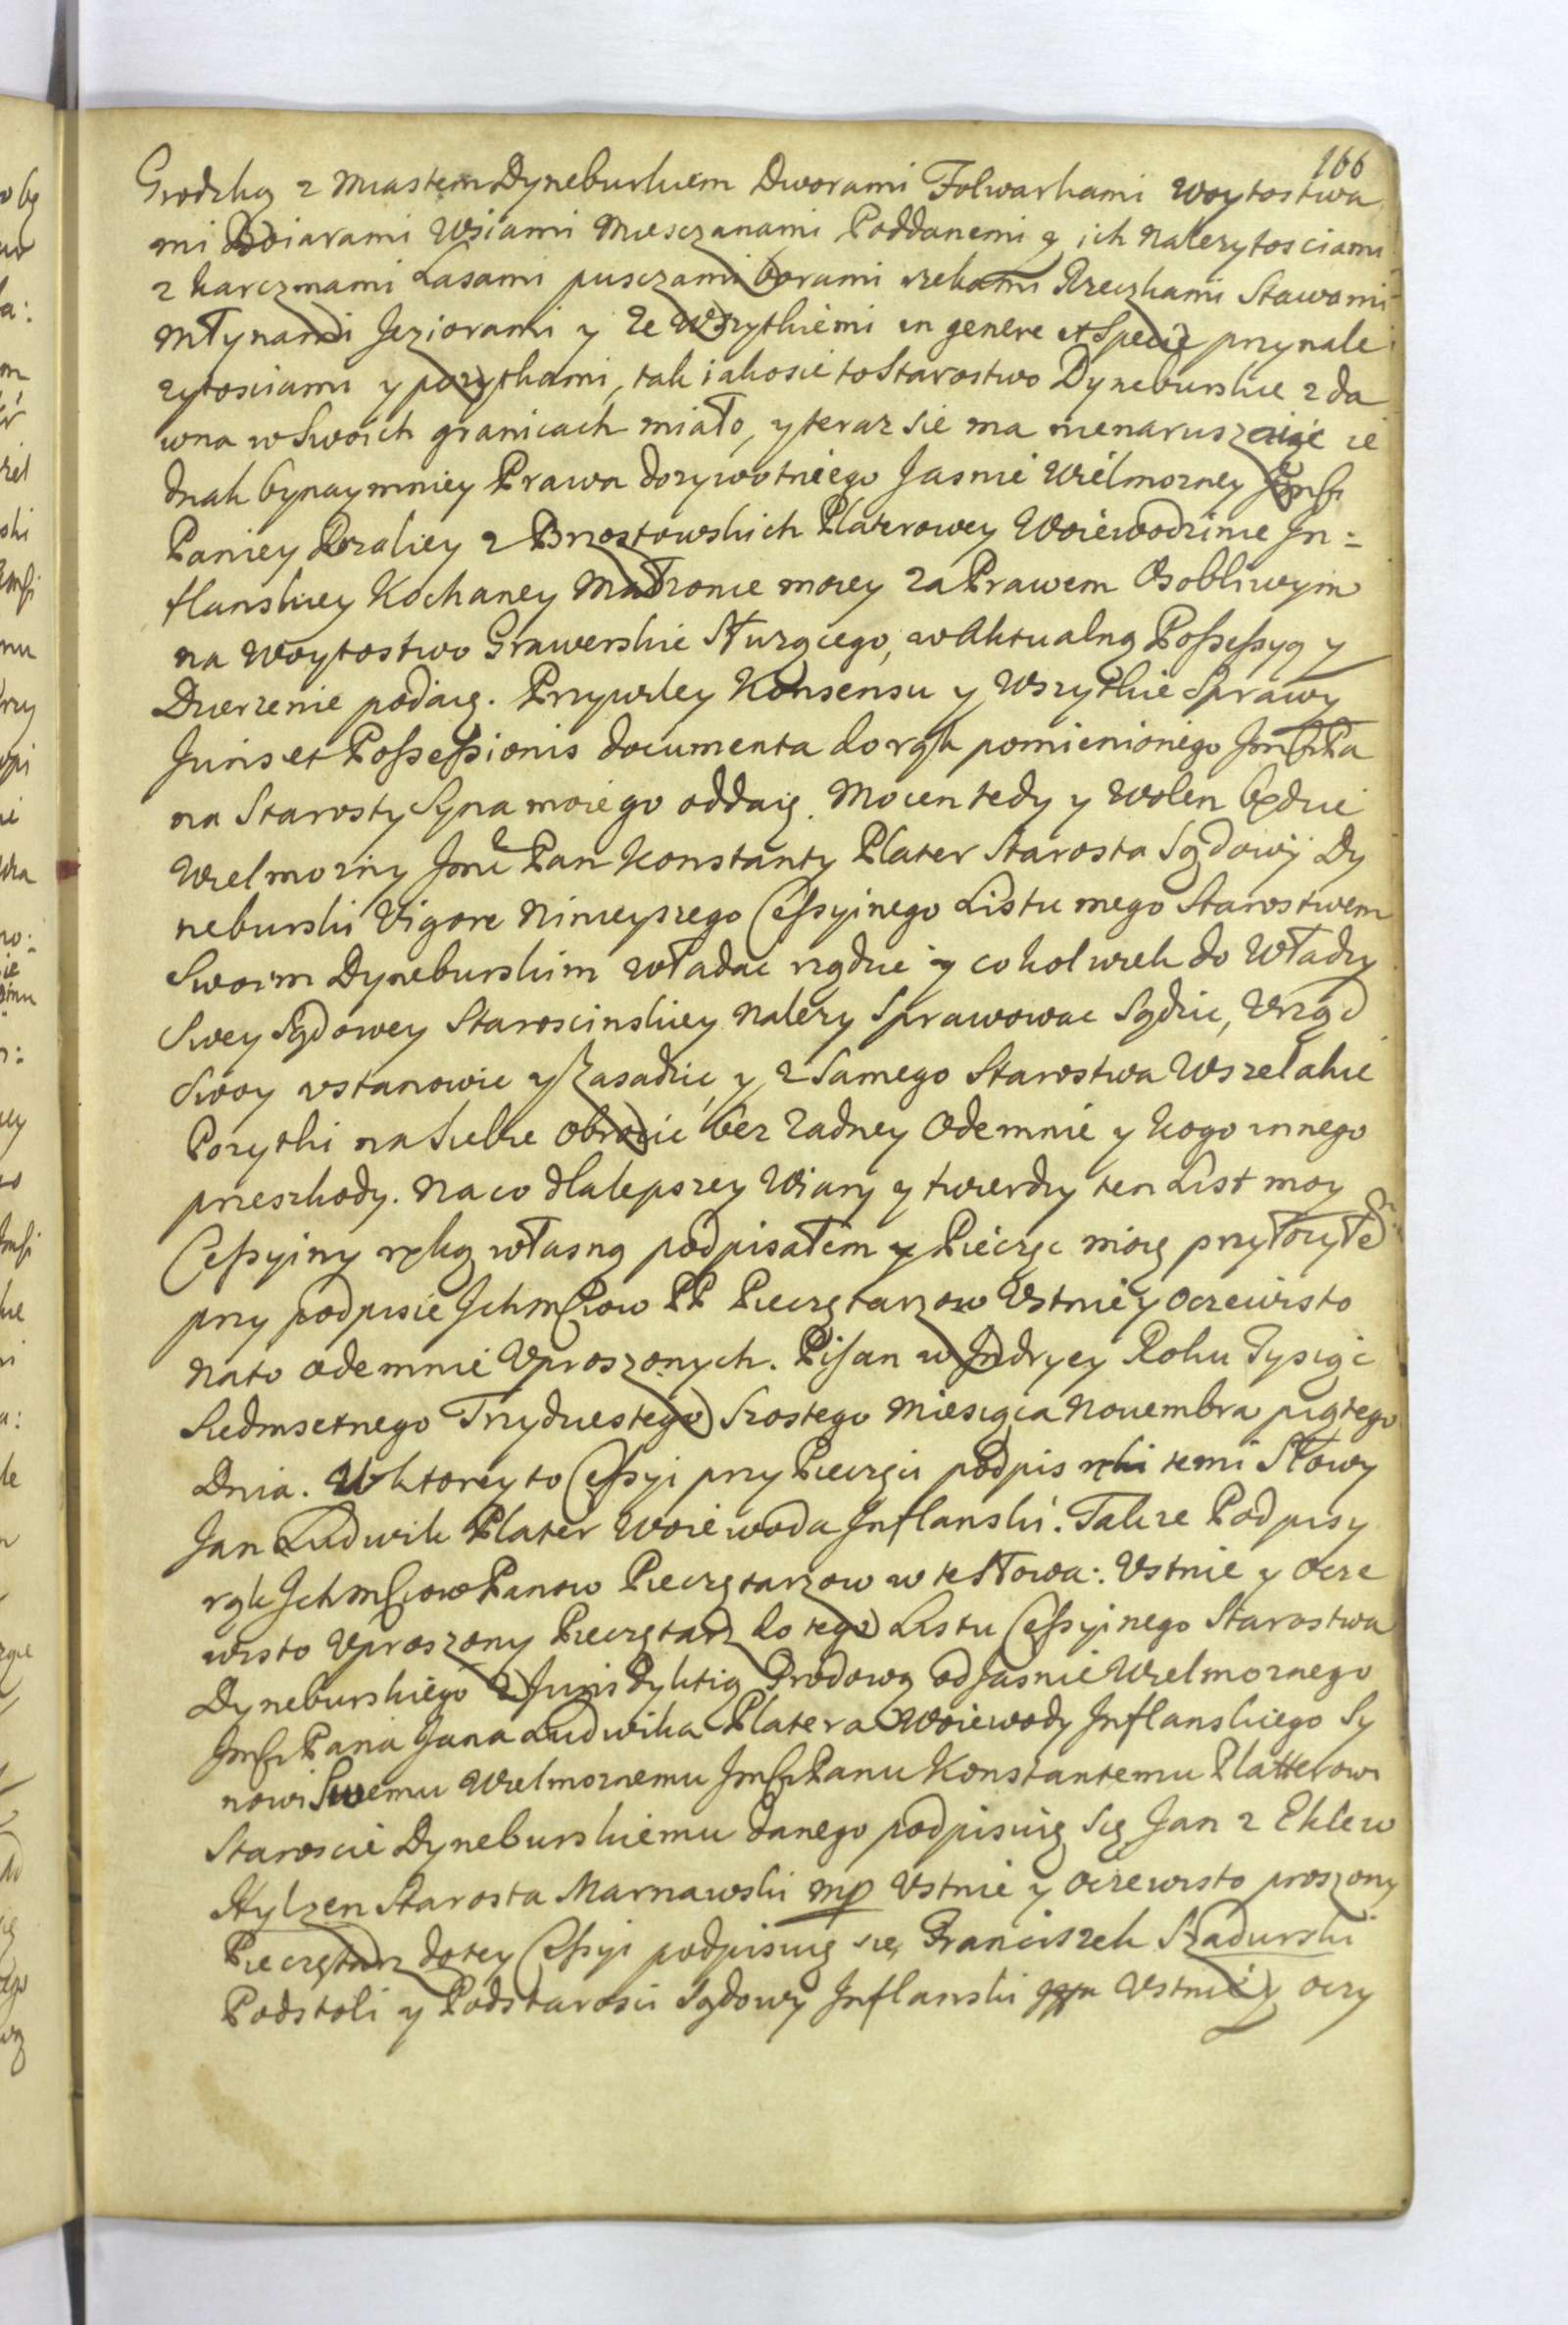 166
Grodzką z Miastem Dyneburkiem Dworami Folwarkami Woytostwa
mi Boiarami Wsiami Miesczanami Poddanemi y ich Nalezytosciami
z karczmami Lasami pusczami borami rzekami Rzeczkami Stawami
Młynami Jeziorami y Ze Wszytkiemi in genere et Specie przynale
zytosciami y pozytkami, tak iakosie to Starostwo Dyneburskie z da
wna w Swoich granicach miało, y teraz sie ma nienaruszaiąc ie
dnak bynaymniey Prawa dozywotniego Jasnie Wielmozney JmSci
Paniey Rozaliey z Brzostowskich Platerowey Woiewodzinie In=
flanskiey Kochaney Małzonce moiey za Prawem Osobliwym
na Woytostwo Grawerskie Słuzącego, w Aktualną Possessyą y
Dzierzenie podaię. Przywiley Konsensu y Wszytkie Sprawy
Juris et Possessionis documenta do rąk pomienionego JmSci Pa
na Starosty Syna moiego oddaię. Mocen tedy y Wolen będzie
Wielmozny Jmc Pan Konstanty Plater Starosta Sądowy Dy
neburski Vigore Ninieyszego Cessyinego Listu mego Starostwem
Swoim Dyneburskim władac rządzic y cokolwiek do Władzy
Swey Sądowey Staroscinskiey Nalezy Sprawowac Sądzic, Vrząd
Swoy vstanowic y Zasadzic, y z Samego Starostwa Wszelakie
Pozytki na Siebie obrocic bez Zadney Odemnie y kogo innego
przeszkody. Na co dla lepszey Wiary y twierdzy ten List moy
Cessyiny ręką własną podpisałem y Pieczęc moię przyłozyłe
przy podpisie Ichmsciow PP Pieczętarzow Vstnie y oczewisto
Nato odemnie Vproszonych. Pisan w Indrycy Roku Tysiąc
Siedmsetnego Trydziestego Szostego Miesiąca Nouembra piątego
Dnia. W ktorey to Cessyi przy Pieczęci podpis ręki temi Słowy
Jan Ludwik Plater Woiewoda Inflanski. Takze Podpisy
rąk Ichmsciow Panow Pieczętarzow w te słowa: Vstnie y Ocze
wisto Vproszony Pieczętarz do tego Listu Cessyinego Starostwa
Dyneburskiego z Jurisdyktią Grodową od Jasnie Wielmoznego
JmSci Pana Jana Ludwika Platera Woiewody Inflanskiego Sy
nowi Swemu Wielmoznemu JmSci Panu Konstantemu Platterowi
Staroscie Dyneburskiemu danego podpisuię Się Jan z Eklew
Hylzen Starosta Marnawski mp Vstnie y oczewisto proszony
Pieczętarz do tey Cessyi podpisuię się, Franciszek Szadurski
Podstoli y Podstarosci Sądowy Inflanski Vstnie y oczy